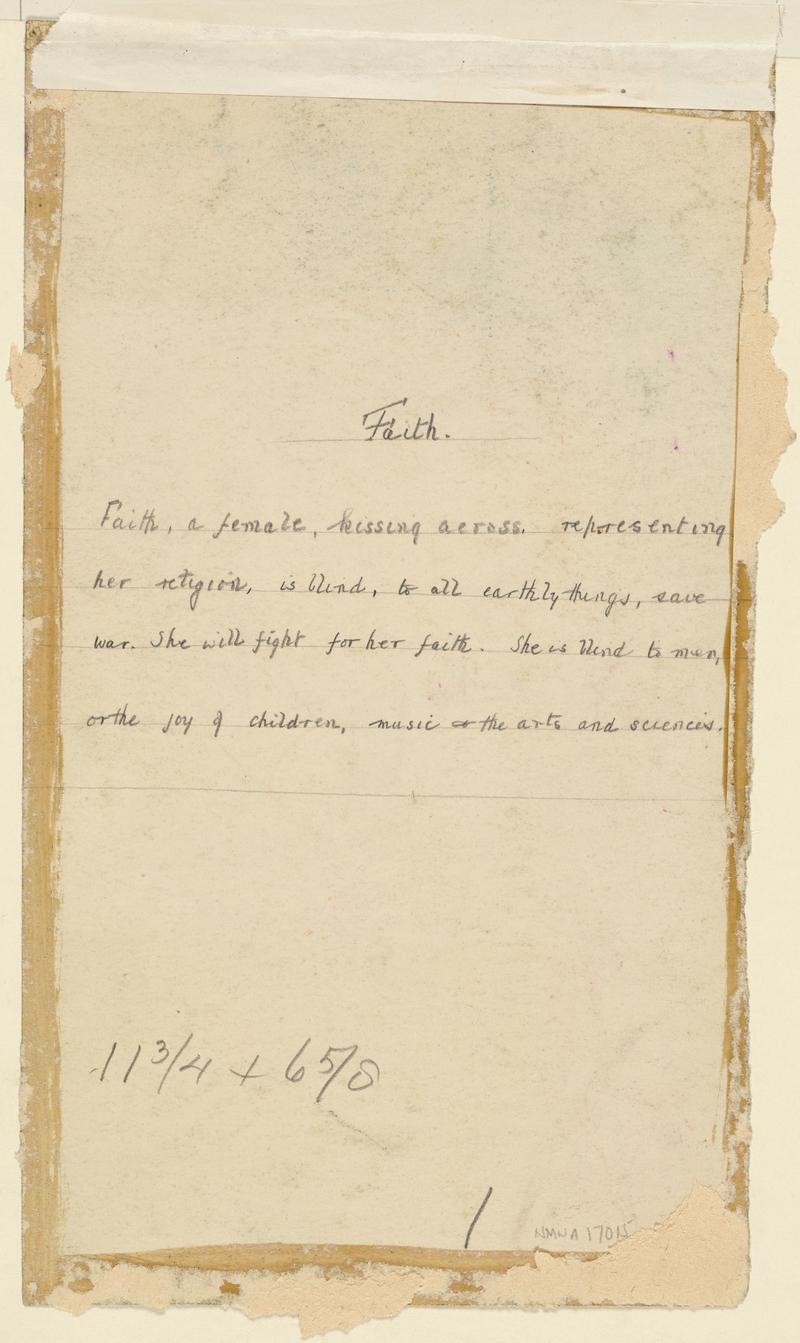 Faith.
Faith, a female, kissing across. representing
her religion, is blind, to all earthly things, save
war. She will fight for her faith. She is blind to men,
or the joy of children, music or the arts and sciences.
11 3/4 + 6 5/8
1
NMWA 170